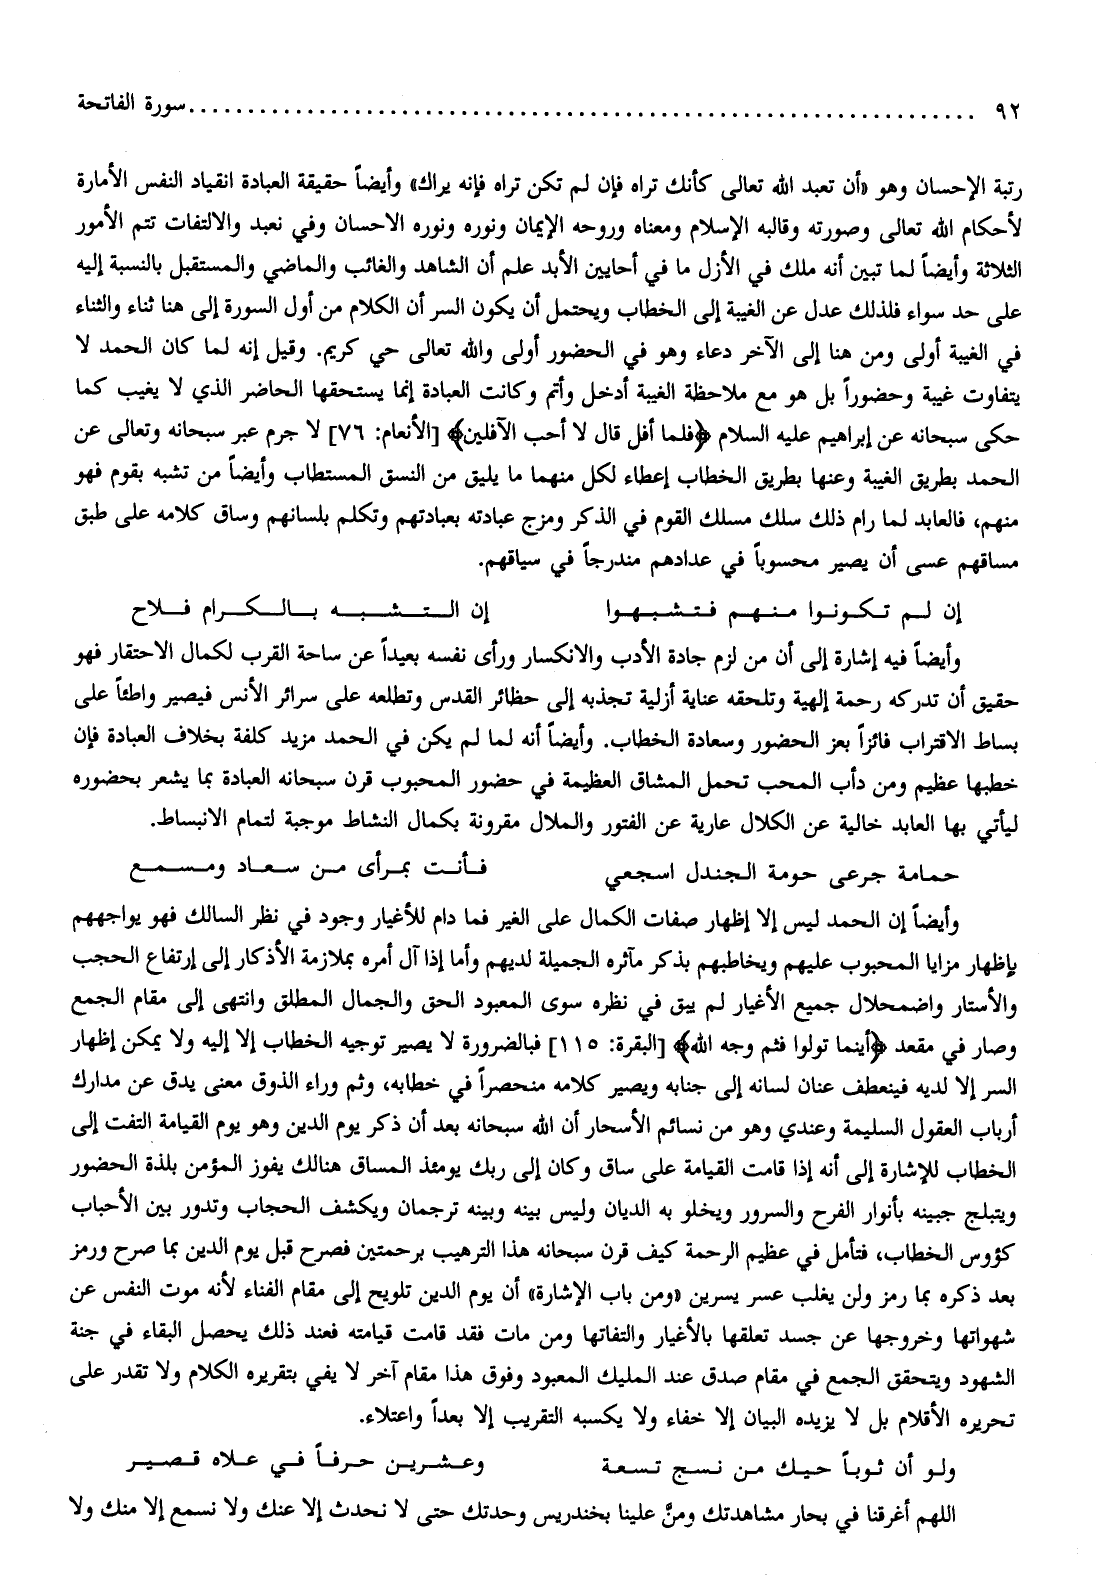 ٩٢ ........................................................................ سورة الفاتحة
رتبة الإحسان وهو «أن تعبد الله تعالى كأنك تراه فإن لم تكن تراه فإنه يراك» وأيضاً حقيقة العبادة انقياد النفس الأمارة
لأحكام الله تعالى وصورته وقالبه الإسلام ومعناه وروحه الإيمان ونوره ونوره الاحسان وفي نعبد والالتفات تتم الأمور
الثلاثة وأيضاً لما تبين أنه ملك في الأزل ما في أحايين الأبد علم أن الشاهد والغائب والماضي والمستقبل بالنسبة إليه
على حد سواء فلذلك عدل عن الغيبة إلى الخطاب ويحتمل أن يكون السر أن الكلام من أول السورة إلى هنا ثناء والثناء
في الغيبة أولى ومن هنا إلى الآخر دعاء وهو في الحضور أولى والله تعالى حي كريم. وقيل إنه لما كان الحمد لا
يتفاوت غيبة وحضوراً بل هو مع ملاحظة الغيبة أدخل وأتم وكانت العبادة إنما يستحقها الحاضر الذي لا يغيب كما
حكى سبحانه عن إبراهيم عليه السلام ﴿فلما أفل قال لا أحب الآفلين﴾ [الأنعام: ٧٦] لا جرم عبر سبحانه وتعالى عن
الحمد بطريق الغيبة وعنها بطريق الخطاب إعطاء لكل منهما ما يليق من النسق المستطاب وأيضاً من تشبه بقوم فهو
منهم، فالعابد لما رام ذلك سلك مسلك القوم في الذكر ومزج عبادته بعبادتهم وتكلم بلسانهم وساق كلامه على طبق
مساقهم عسى أن يصير محسوباً في عدادهم مندرجاً في سياقهم.
إن لم تكونوا منهم فتشبهوا إن التشبه بالكرام فلاح
وأيضاً فيه إشارة إلى أن من لزم جادة الأدب والانكسار ورأى نفسه بعيداً عن ساحة القرب لكمال الاحتقار فهو
حقيق أن تدركه رحمة إلهية وتلحقه عناية أزلية تجذبه إلى حظائر القدس وتطلعه على سرائر الأنس فيصير واطئاً على
بساط الاقتراب فائزاً بعز الحضور وسعادة الخطاب. وأيضاً أنه لما لم يكن في الحمد مزيد كلفة بخلاف العبادة فإن
خطبها عظيم ومن دأب المحب تحمل المشاق العظيمة في حضور المحبوب قرن سبحانه العبادة بما يشعر بحضوره
ليأتي بها العابد خالية عن الكلال عارية عن الفتور والملال مقرونة بكمال النشاط موجبة لتمام الانبساط.
حمامة جرعى حومة الجندل اسجعي فأنت بمرأى من سعاد ومسمع
وأيضاً إن الحمد ليس إلا إظهار صفات الكمال على الغير فما دام للأغيار وجود في نظر السالك فهو يواجههم
بإظهار مزايا المحبوب عليهم ويخاطبهم بذكر مآثره الجميلة لديهم وأما إذا آل أمره بملازمة الأذكار إلى إرتفاع الحجب
والأستار واضمحلال جميع الأغيار لم يبق في نظره سوى المعبود الحق والجمال المطلق وانتهى إلى مقام الجمع
وصار في مقعد ﴿أينما تولوا فثم وجه الله﴾ [البقرة: ١١٥] فبالضرورة لا يصير توجيه الخطاب إلا إليه ولا يمكن إظهار
السر إلا لديه فينعطف عنان لسانه إلى جنابه ويصير كلامه منحصراً في خطابه، وثم وراء الذوق معنى يدق عن مدارك
أرباب العقول السليمة وعندي وهو من نسائم الأسحار أن الله سبحانه بعد أن ذكر يوم الدين وهو يوم القيامة التفت إلى
الخطاب للإشارة إلى أنه إذا قامت القيامة على ساق وكان إلى ربك يومئذ المساق هنالك يفوز المؤمن بلذة الحضور
ويتبلج جبينه بأنوار الفرح والسرور ويخلو به الديان وليس بينه وبينه ترجمان ويكشف الحجاب وتدور بين الأحباب
كؤوس الخطاب، فتأمل في عظيم الرحمة كيف قرن سبحانه هذا الترهيب برحمتين فصرح قبل يوم الدين بما صرح ورمز
بعد ذكره بما رمز ولن يغلب عسر يسرين «ومن باب الإشارة» أن يوم الدين تلويح إلى مقام الفناء لأنه موت النفس عن
شهواتها وخروجها عن جسد تعلقها بالأغيار والتفاتها ومن مات فقد قامت قيامته فعند ذلك يحصل البقاء في جنة
الشهود ويتحقق الجمع في مقام صدق عند المليك المعبود وفوق هذا مقام آخر لا يفي بتقريره الكلام ولا تقدر على
تحريره الأقلام بل لا يزيده البيان إلا خفاء ولا يكسبه التقريب إلا بعداً واعتلاء.
ولو أن ثوباً حيك من نسج تسعة وعشرين حرفاً في علاه قصير
اللهم أغرقنا في بحار مشاهدتك ومنَّ علينا بخندريس وحدتك حتى لا نحدث إلا عنك ولا نسمع إلا منك ولا